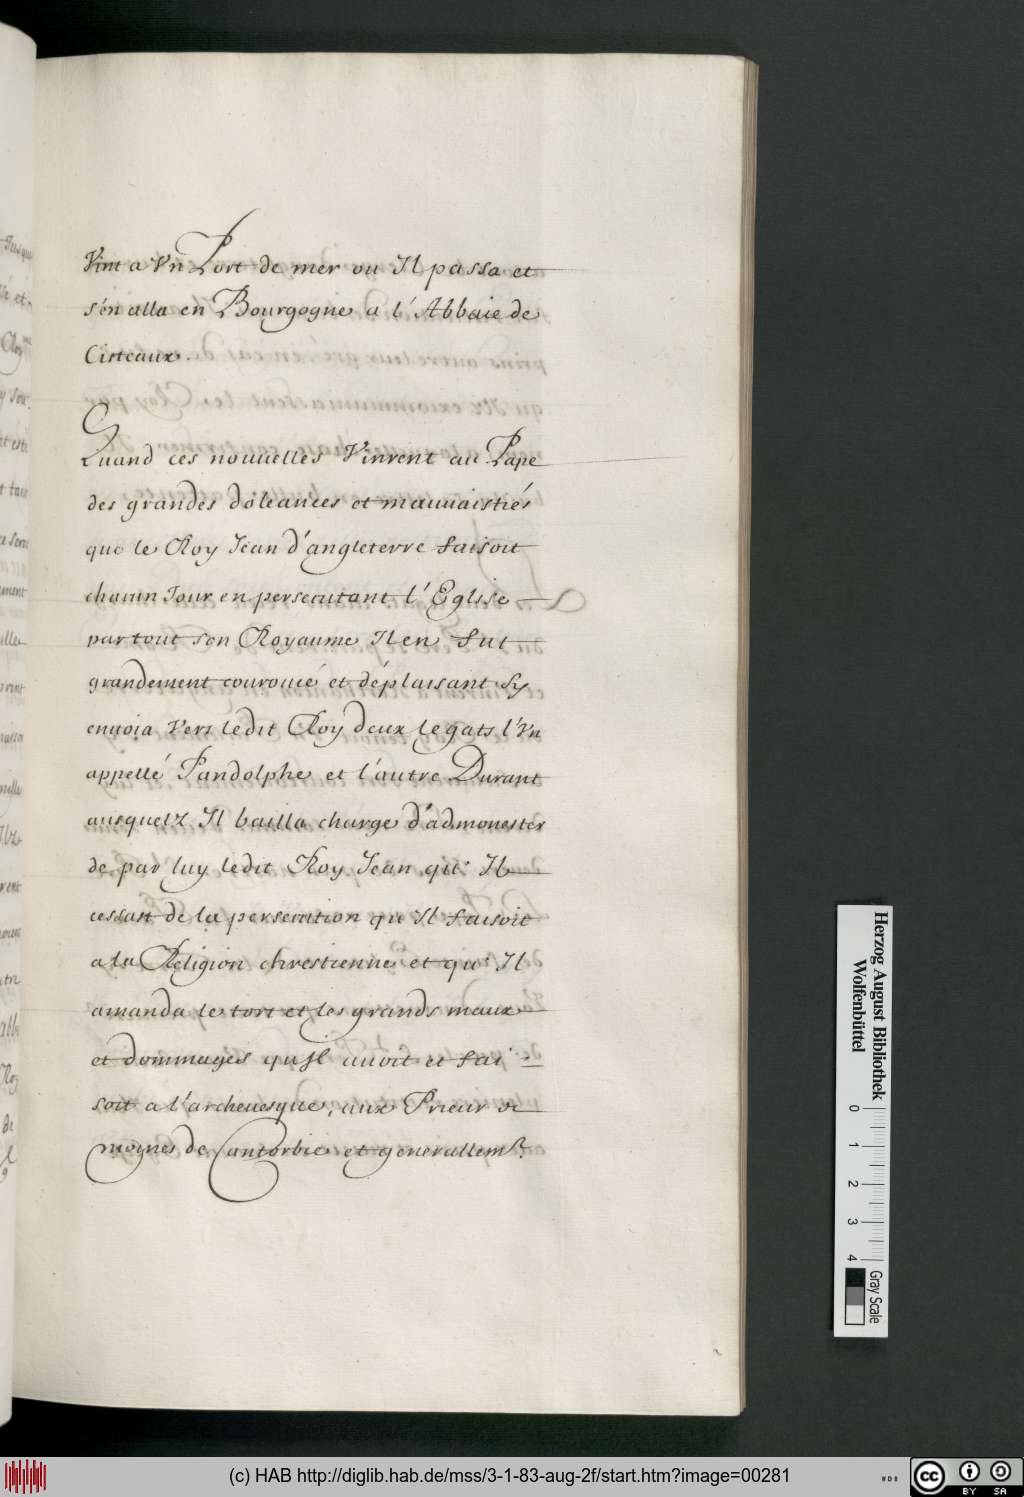 Vint a Vn Port de mer ou Il passa et
s'en alla en Bourgogne a l'Abbaie de
Cisteaux.
Quand ces nouuelles Vinrent au Pape
des grandes doleances et mauuaistiés
que le Roy Jean d'angleterre faisoit
chacun Jour en persecutant l'Eglise
par tout son Royaume Il en fut
grandement courouié et déplaisant sy
enuoia Vers ledit Roy deux legats l'Vn
appellé Pandolphe et l'autre Durant
ausquelz Il bailla charge d'admonester
de par luy ledit Roy Jean qu' Il
cessast de la persecution qu' Il faisoit
a la Religion chrestienne et qu' Il
amanda le tort et les grands maux
et dommages qu'Il auoit et fai-
soit a l'archeuesque, aux Prieur &
moynes de Cantorbie et generallemt.
Herzog August Bibliothek
Wolfenbüttel
0 1 2 3 4
Gray Scale
(c) HAB http://diglib.hab.de/mss/3-1-83-aug-2f/start.htm?image=00281
cc BY SA